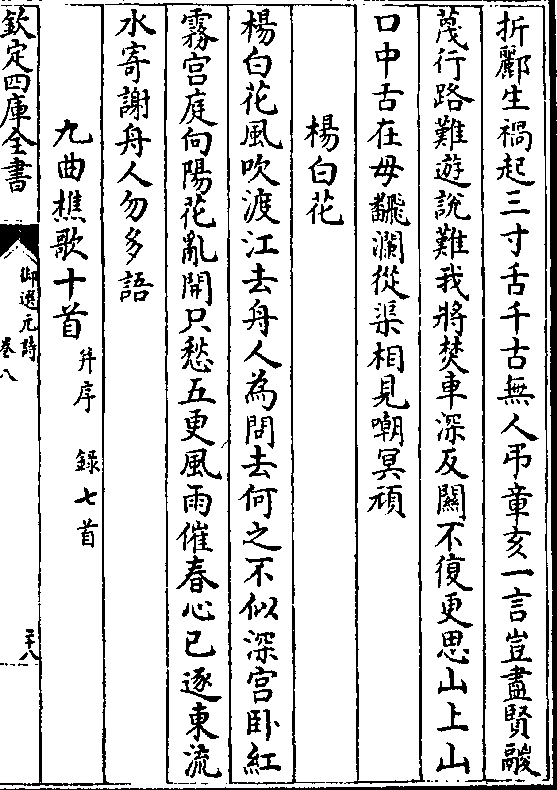 折酈生禍起三寸舌千古無人弔章亥一言豈盡賢融
蔑行路難遊說難我將焚車深反關不復更思山上山
口中舌在毋飜瀾從渠相見嘲冥頑
楊白花
楊白花風吹渡江去舟人為問去何之不似深宮卧紅
霧宮庭向陽花亂開只愁五更風雨催春心已逐東流
水寄謝舟人勿多語
九曲樵歌十首 并序 錄七首
欽定四庫全書 御選元詩 卷八 二十八